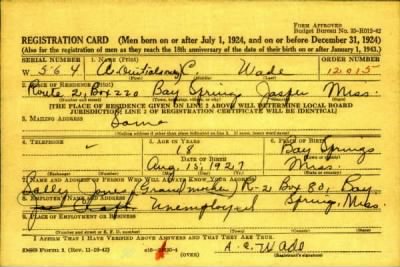 FORM APPROVED
Budget Bureau No. 33-R012-42
REGISTRATION CARD (Men born on or after July 1, 1924, and on or before December 31, 1924)
(Also for the registration of men as they reach the 18th anniversary of the date of their birth on or after January 1, 1943.)
SERIAL NUMBER 1. NAME (Print) ORDER NUMBER
W 564 C Wade 12015
2. PLACE OF RESIDENCE (Print)
Route 2, Box 220 Bay Spring Jasper Miss.
[THE PLACE OF RESIDENCE GIVEN ON LINE 2 ABOVE WILL DETERMINE LOCAL BOARD
JURISDICTION; LINE 2 OF REGISTRATION CERTIFICATE WILL BE IDENTICAL]
3. MAILING ADDRESS
Same
4. TELEPHONE 5. AGE IN YEARS 6. PLACE OF BIRTH
18 Bay Springs
DATE OF BIRTH
Aug 15, 1927 Miss.
7. NAME AND ADDRESS OF PERSON WHO WILL ALWAYS KNOW YOUR ADDRESS
Sally Jones (Grandmother) R-2 Box 80, Bay
8. EMPLOYER'S NAME AND ADDRESS
Unemployed Spring, Miss.
9. PLACE OF EMPLOYMENT OR BUSINESS
I AFFIRM THAT I HAVE VERIFIED ABOVE ANSWERS AND THAT THEY ARE TRUE.
A. C. Wade
(Registrant's signature)
(OVER)